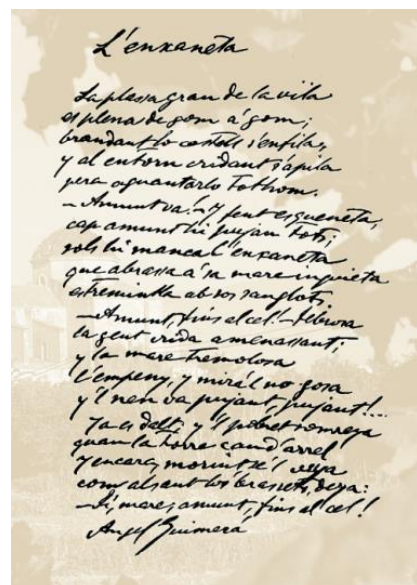 L'enxaneta
La plassa gran de la vila
es plena de gom á gom;
brandant lo castell s'enfila,
y al entorn cridant s'apila
pera aguantarlo tothom.
—Amunt va!—Y fent esqueneta,
cap amunt hi pujan tots;
sols hi manca l'enxaneta
que abrassa á sa mare inquieta
estremintla ab sos sanglots.
—Amunt, fins al cel!—Febrosa
la gent crida amenassant;
y la mare tremolosa
l'empeny, y mirá'l no gosa
y'l nen va pujant, pujant!...
Ja es dalt; y'l pobret somreya
quan la torre cau d'arrel
y encara, morint se'l veya
com alsant los brassets, deya:
—Sí, mare, amunt, fins al cel!
Angel Guimerá